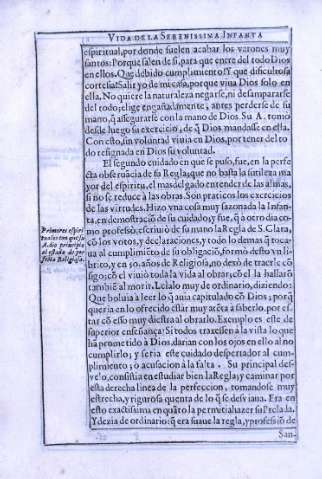 VIDA DE LA SERENISSIMA INFANTA
espiritual, por donde suelen acabar los varones muy
santos: Porque salen de si, para que entre del todo Dios
en ellos. Que debido cumplimiento! Y que dificultosa
cortesia! Salir yo de mi casa, por que viua Dios solo en
ella. No quiere la naturaleza negarse, ni desampararse
del todo; elige engañadamente, antes perderse de su
mano, q̃ assegurarse con la mano de Dios Su A. tomò
desde luego su exercicio, de q̃ Dios mandasse en esta.
Con esto, sin voluntad viuia en Dios, por tener del to
do resignada en Dios su voluntad.
El segundo cuidado en que se puso, fue, en la perfe
cta obseruãcia de su Regla, que no basta la sutileza ma
yor del espiritu, el mas delgado entender de las almas,
si no se reduce a las obras. Son praticos los exercicios
de las virtudes. Hizo vna cosa muy sazonada la Infan-
ta, en demostraciõ de su cuidado, y fue, q̃ a otro dia co-
mo professò, escriuiò de su mano la Regla de S. Clara,
cõ los votos, y declaraciones, y todo lo demas q̃ toca-
ua al cumplimiẽto de su obligaciõ, formò desto vn li-
brito, y en 50. años de Religiosa, no dexò de traerle cõ
sigo; cõ el viuiò toda la vida al obrar, cõ el la hallarõ
tambiẽ al morir. Leialo muy de ordinario, diziendo:
Que boluia à leer lo q̃ auia capitulado cõ Dios; porq̃
queria en lo ofrecido estàr muy atẽta a saberlo, por es-
tar cõ esso muy diestra al obrarlo. Exemplo es este de
superior enseñança! Si todos traxessen à la vista lo que
hã prometido à Dios, darian con los ojos en ello al no
cumplirlo; y seria este cuidado despertador al cum-
plimiento; o acusacion à la falta. Su principal des-
velo, consistia en estudiar bien la Regla; y caminar por
esta derecha linea de la perfeccion, tomandose muy
estrecha, y rigurosa quenta de lo q̃ se desviaua. Era en
esto exactissima en quãto la permitia hazer su Prelada.
Y dezia de ordinario: q̃ era suaue la regla, y professiõ de
San-
Primeros espiri
tuales con que su
A. dio principio
al estado de per
fecta Religiosa.